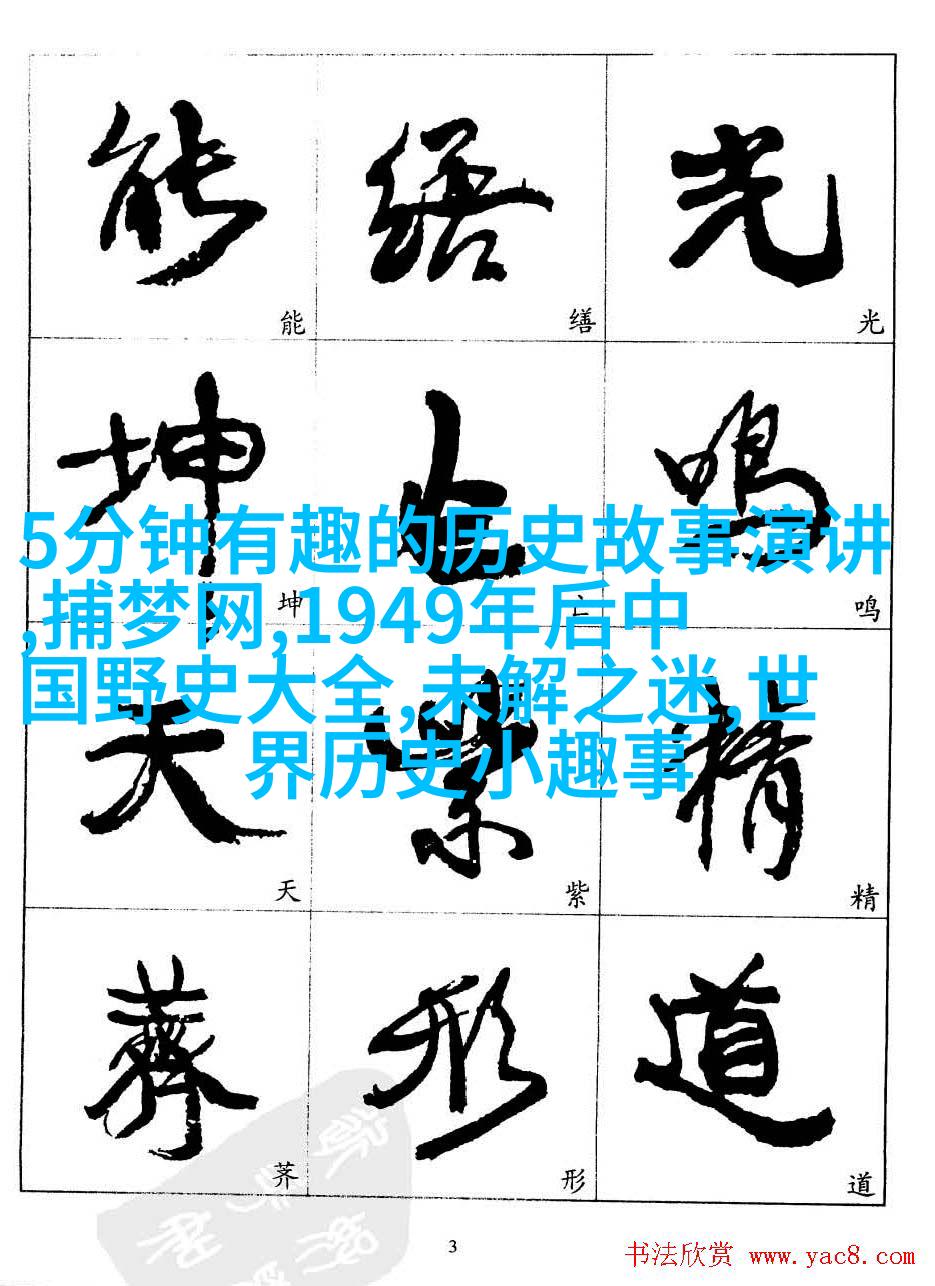 能 缮 光
能 缮 光
坤 亡 鸣
5分钟有趣的历史故事演讲
,捕梦网,1949年后中
国野史大全,未解之迷,世
界历史小趣事
坤 亡 鸣
天 紫 精
天 紫 精
荠 形 道
荠 形 道
3
书法欣赏 www.yac8.com